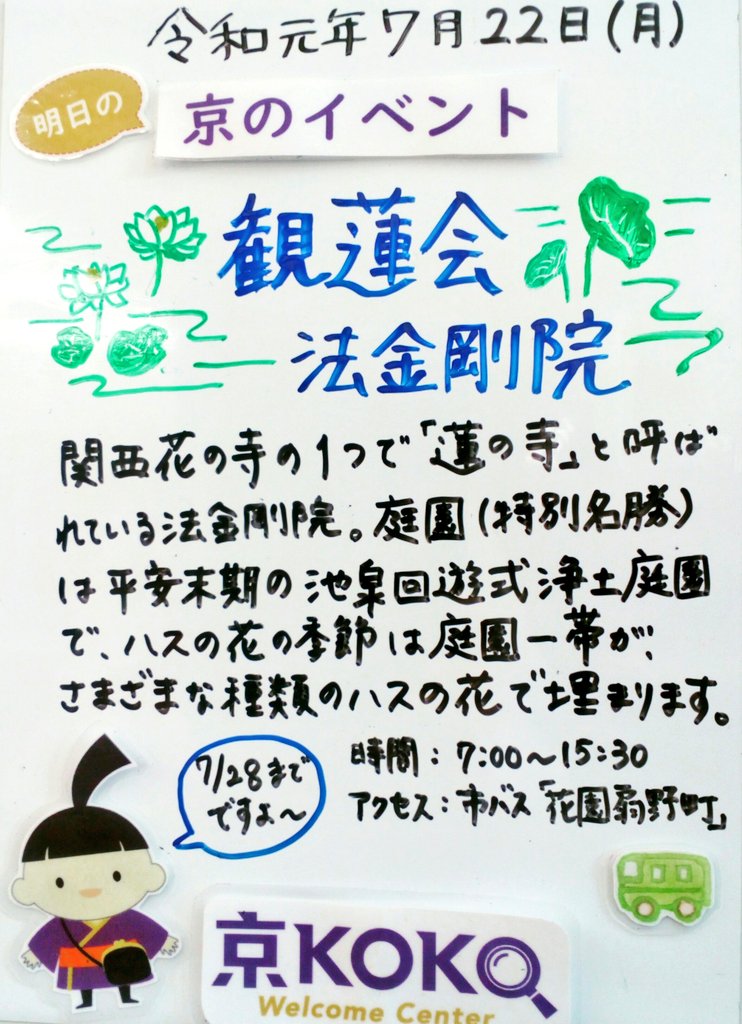 令和元年7月22日(月)
明日の
京のイベント
観蓮会
法金剛院
関西花の寺の1つで「蓮の寺」と呼ば
れている法金剛院。庭園(特別名勝)
は平安末期の池泉回遊式浄土庭園
で、ハスの花の季節は庭園一帯が、
さまざまな種類のハスの花で埋まります。
7/28まで
ですよ〜
時間：7:00〜15:30
アクセス：市バス「花園扇野町」
京KOKO
Welcome Center